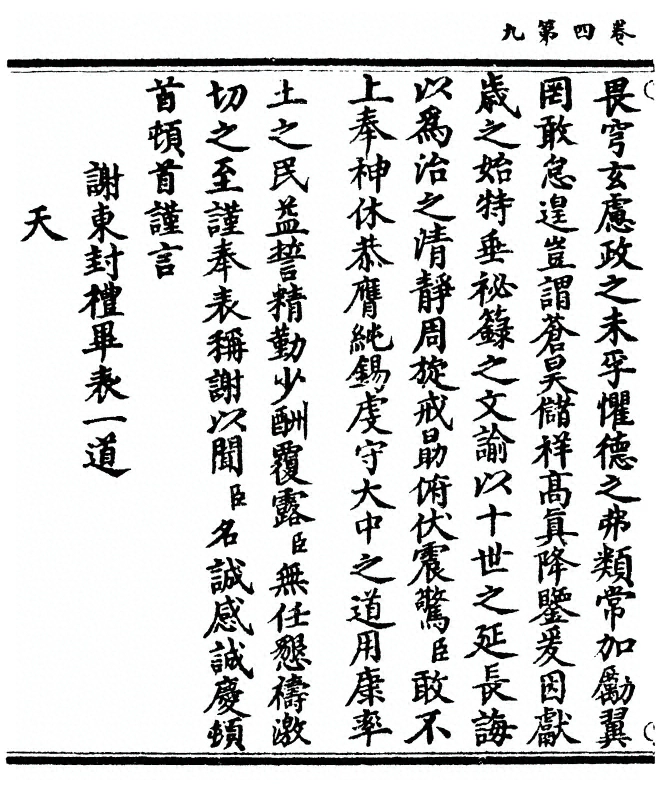 卷四第九
畏穹玄慮政之未孚懼德之弗類常加勵翼
罔敢怠遑豈謂蒼昊儲祥高眞降鑒爰因獻
歲之始特垂祕籙之文諭以十世之延長誨
以爲治之淸靜周旋戒勗俯伏震驚臣敢不
上奉神休恭膺純錫虔守大中之道用康率
土之民益誓精勤少酬覆露臣無任懇禱激
切之至謹奉表稱謝以聞臣名誠感誠慶頓
首頓首謹言
謝東封禮畢表一道
天